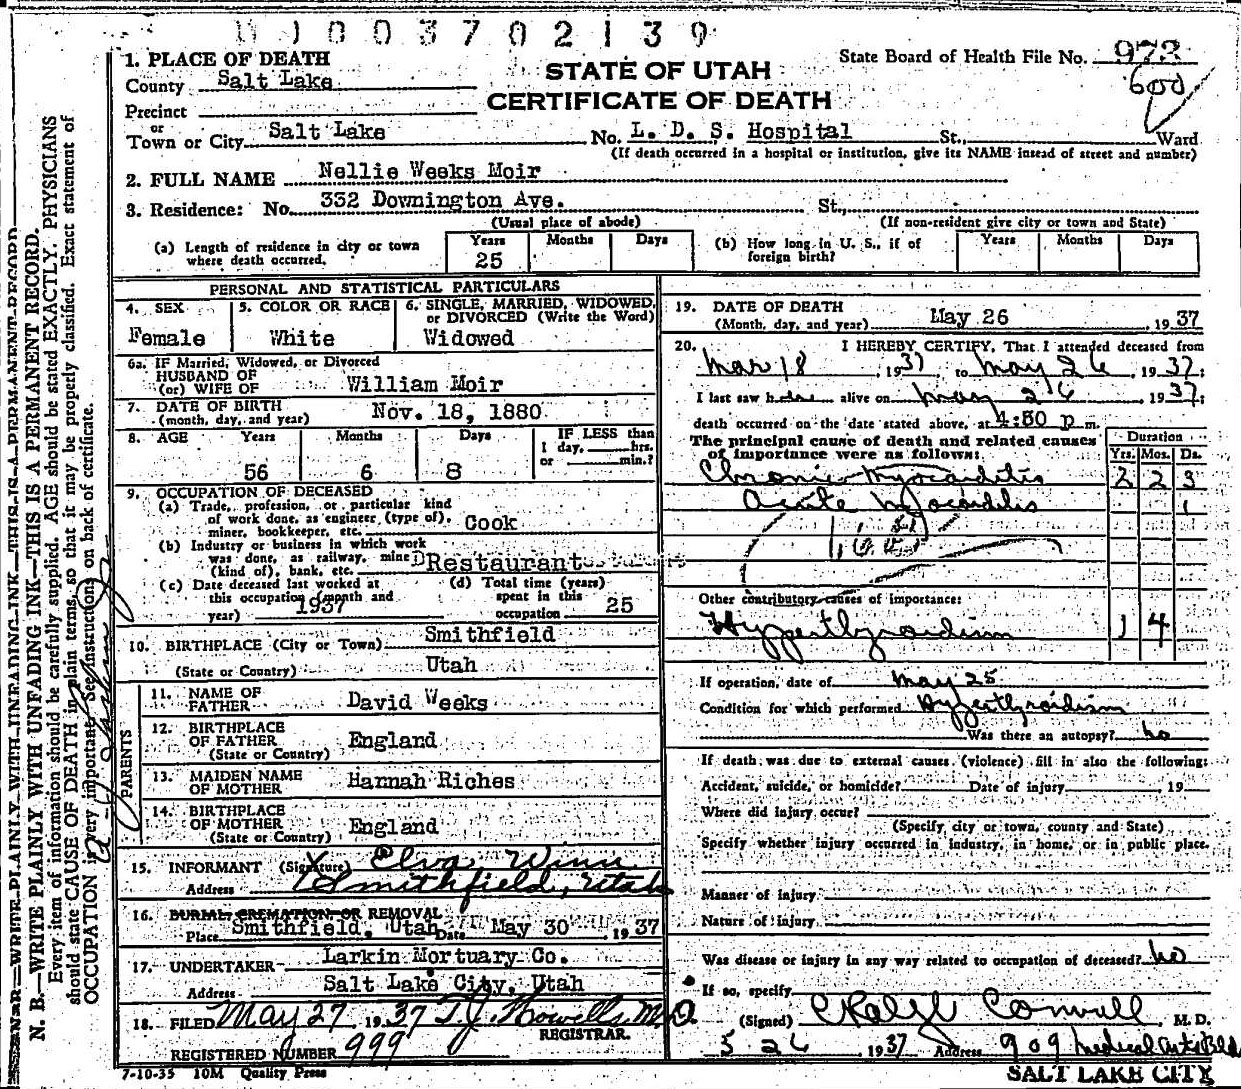 0 1 0 0 3 7 0 2 1 3 9
State Board of Health File No. 973
600
STATE OF UTAH
CERTIFICATE OF DEATH
1. PLACE OF DEATH
County Salt Lake
Precinct
or
Town or City Salt Lake No. L. D. S. Hospital St., Ward
(If death occurred in a hospital or institution, give its NAME instead of street and number)
2. FULL NAME Nellie Weeks Moir
3. Residence: No. 332 Downington Ave. St.,
(Usual place of abode) (If non-resident give city or town and State)
(a) Length of residence in city or town where death occurred. Years 25 Months Days
(b) How long in U. S., if of foreign birth? Years Months Days
PERSONAL AND STATISTICAL PARTICULARS
4. SEX Female
5. COLOR OR RACE White
6. SINGLE, MARRIED, WIDOWED, or DIVORCED (Write the Word) Widowed
6a. IF Married, Widowed, or Divorced
HUSBAND OF
(or) WIFE OF William Moir
7. DATE OF BIRTH
(month, day, and year) Nov. 18, 1880
8. AGE Years 56 Months 6 Days 8
IF LESS than
1 day, hrs.
or min.?
9. OCCUPATION OF DECEASED
(a) Trade, profession, or particular kind
of work done, as engineer (type of),
miner, bookkeeper, etc. Cook
(b) Industry or business in which work
was done, as railway, mine
(kind of), bank, etc. Restaurant
(c) Date deceased last worked at
this occupation (month and
year) 1937
(d) Total time (years)
spent in this
occupation 25
10. BIRTHPLACE (City or Town) Smithfield
(State or Country) Utah
PARENTS
11. NAME OF FATHER David Weeks
12. BIRTHPLACE OF FATHER England
(State or Country)
13. MAIDEN NAME OF MOTHER Hannah Riches
14. BIRTHPLACE OF MOTHER England
(State or Country)
15. INFORMANT (Signature) Elva Winn
Address Smithfield, Utah
16. BURIAL, CREMATION, OR REMOVAL
Place Smithfield, Utah Date May 30 1937
17. UNDERTAKER Larkin Mortuary Co.
Address Salt Lake City, Utah
18. FILED May 27 1937 T.J. Howells M.D.
REGISTRAR.
REGISTERED NUMBER 999
7-10-35 10M Quality Press
19. DATE OF DEATH
(Month, day, and year) May 26 1937
20. I HEREBY CERTIFY, That I attended deceased from
Mar 18, 1937 to May 26 1937;
I last saw her alive on May 26 1937;
death occurred on the date stated above, at 4:50 p m.
The principal cause of death and related causes
of importance were as follows:
Duration
Yrs. Mos. Ds.
Chronic Myocarditis 2 2 3
Acute Myocarditis 1
Other contributory causes of importance:
Hyperthyroidism 1 4
If operation, date of May 25
Condition for which performed Hyperthyroidism
Was there an autopsy? no
If death was due to external causes (violence) fill in also the following:
Accident, suicide, or homicide? Date of injury 19
Where did injury occur?
(Specify city or town, county and State)
Specify whether injury occurred in industry, in home, or in public place.
Manner of injury
Nature of injury
Was disease or injury in any way related to occupation of deceased? no
If so, specify
(Signed) Cornwall, M. D.
5 26 1937 Address 909 Medical Arts Bld
SALT LAKE CITY
N. B.—WRITE PLAINLY WITH UNFADING INK—THIS IS A PERMANENT RECORD.
Every item of information should be carefully supplied. AGE should be stated EXACTLY. PHYSICIANS
should state CAUSE OF DEATH in plain terms, so that it may be properly classified. Exact statement of
OCCUPATION is very important. See instructions on back of certificate.